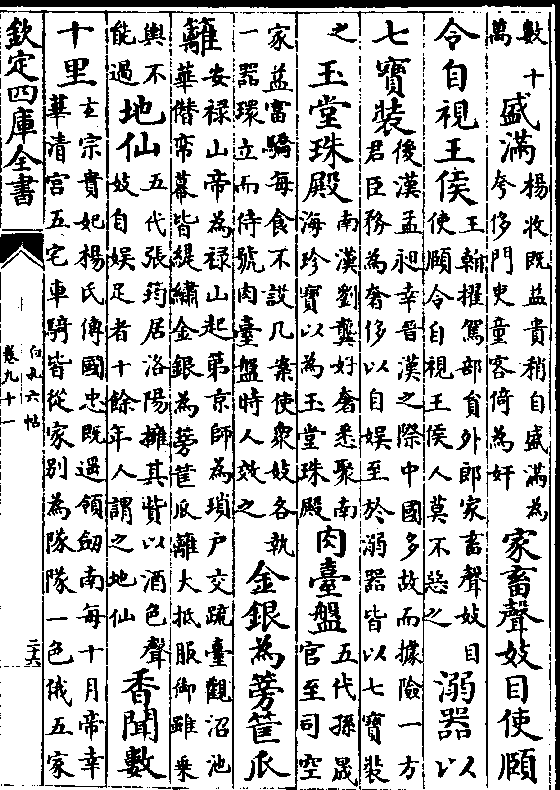 數十萬 盛滿 楊收既益貴稍自盛滿為夸侈門吏童客倚為奸 家畜聲妓目使頤
令自視王侯 王翰擢駕部員外郎家畜聲妓目使頤令自視王侯人莫不惡之 溺器以
七寶裝 後漢孟昶幸晉漢之際中國多故而據險一方君臣務為奢侈以自娛至於溺器皆以七寶裝
之 玉堂珠殿 南漢劉龑好奢悉聚南海珍寶以為玉堂珠殿 肉臺盤 五代孫晟官至司空
家益富驕每食不設几案使衆妓各執一器環立而侍號肉臺盤時人效之 金銀為蒡筐爪
籬 安禄山帝為禄山起第京師為瑣户交疏臺觀沼池華僭帟幕皆緹繡金銀為蒡筐爪離大抵服御雖乗
輿不能過 地仙 五代張筠居洛陽擁其貲以酒色聲妓自娛足者十餘年人謂之地仙 香聞數
十里 玄宗貴妃楊氏傳國忠既遥領劒南每十月帝幸華清宫五宅車騎皆從家别為隊隊一色俄五家
欽定四庫全書
白孔六帖
卷九十一
二六